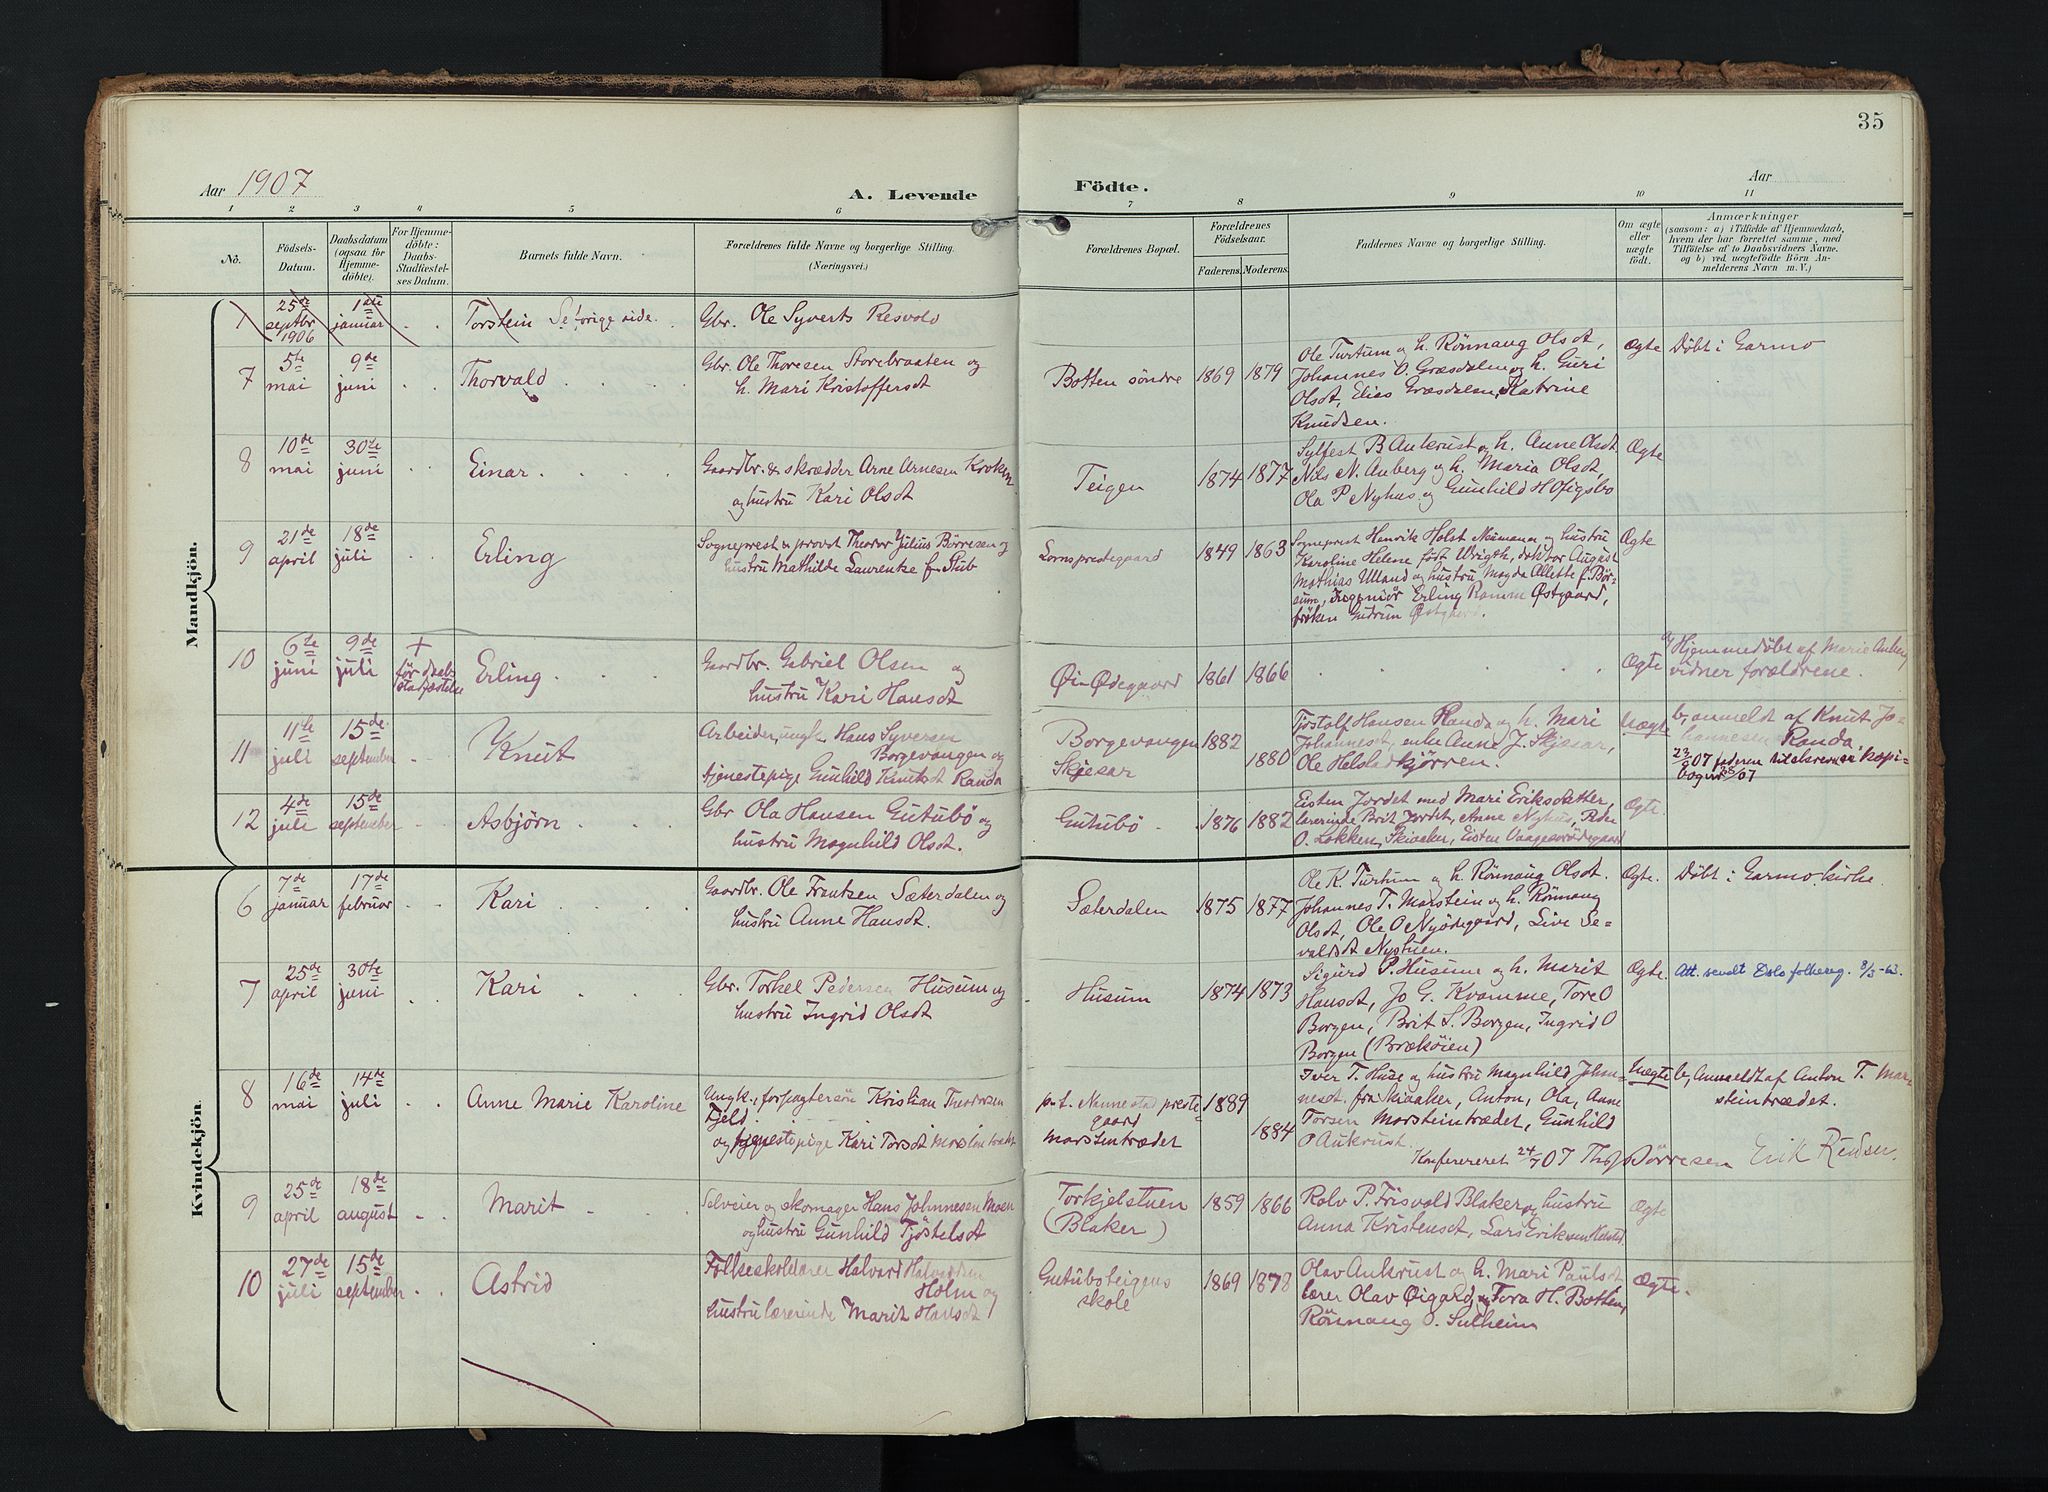 35
Aar 1907
A. Levende Födte.
Aar
1 2 3 4 5 6 7 8 9 10 11
No.
Födsels-
Datum.
Daabsdatum
(ogsaa for
Hjemme-
döbte).
For Hjemme-
döbte:
Daabs-
Stadfæstel-
ses Datum.
Barnets fulde Navn.
Forældrenes fulde Navne og borgerlige Stilling.
(Næringsvei.)
Forældrenes Bopæl.
Forældrenes
Födselsaar.
Faderens. Moderens.
Faddernes Navne og borgerlige Stilling.
Om ægte
eller
uægte
födt.
Anmærkninger
(saasom: a) i Tilfælde af Hjemmedaab,
hvem der har forrettet samme, med
Tilföielse af to Daabsvidners Navne
og b) ved uægtefödte Börn An-
melderens Navn m. V.)
Mandkjön.
1 25de septbr 1906 1ste januar Torstein Se forige side. Gbr. Ole Syverts Resvold
7 5te mai 9de juni Thorvald
Gbr. Ole Thoresen Storebraaten og
h. Mari Kristoffersdt
Botten söndre 1869 1879
Ole Turtum og h. Rönnaug Olsdt,
Johannes O. Græsdalen og h. Guri
Olsdt, Elias Græsdalen, Katrine
Knudsen.
Ægte Döbt i Garmo
8 10de mai 30te juni Einar
Gaardbr. & skrædder Arne Arnesen Kroken
og hustru Kari Olsdt
Teigen 1874 1877
Sylfest B Aukrust og h. Anne Olsdt
Nils N. Auberg og h. Maria Olsdt,
Ola P Nyhus og Gunhild H Ofigsbo
Ægte
9 21de april 18de juli Erling
Sogneprest & provst Theodor Julius Börresen og
hustru Mathilde Laurentze f. Stub
Lomsprestegaard 1849 1863
Sogneprest Henrik Holst Neumann og hustru
Karoline Helene födt Wrigth, doktor August
Mathias Ulland og hustru Magda Allette f. Bör-
sum, Ingeniör Erling Ramm Östgaard,
fröken Gudrun Östgaard.
Ægte
10 6te juni 9de juli + før daab-
stadfæstelse Erling
Gaardbr. Gabriel Olsen og
hustru Kari Hansdt
Øi-Ødegaard 1861 1866
Ægte a, Hjemmedöbt af Marie Auberg
vidner forældrene.
11 11te juli 15de september Knut
Arbeider, ungk. Hans Syversen
Borgevangen og
tjenestepige Gunhild Knutsdt Randa
Borgevangen
Skjesar 1882 1880
Tjostolf Hansen Randa og h. Mari
Johannesdt, enke Anne J. Skjesar,
Ole Helstadkjörren.
Uægte b, anmeldt af Knut Jo-
hannesen Randa,
23/8 07 faderen tilskreven kopi-
bogen 38/07
12 4de juli 15de september Asbjörn
Gbr Ola Hansen Gutubö og
hustru Magnhild Olsdt.
Gutubö 1876 1882
Eisten Jordet med Mari Eriksdatter,
lærerinde Brit Jordet, Anne Nyhus, Peder
O. Lökken, Skiaaker, Eisten
Ægte.
Kvindekjön.
6 7de januar 17de februar Kari
Gaardbr. Ole Frantsen Sæterdalen og
hustru Anne Hansdt.
Sæterdalen 1875 1877
Ole K. Turtum og h. Rönnaug Olsdt.
Johannes T. Marstein og h. Rönnaug
Olsdt, Ole O Nyödegaard, Live Se-
valdsdt Nystuen.
Ægte. Döbt i Garmo kirke.
7 25de april 30te juni Kari
Gbr. Torkel Pedersen Husum og
hustru Ingrid Olsdt
Husum 1874 1873
Sigurd P. Husum og h. Marit
Hansdt, Jo G. Kvamme, Tore O
Borgen, Brit S. Borgen, Ingrid O
Borgen (Brækøien)
Ægte. Att. sendt Oslo folkereg. 8/3-63.
8 16de mai 14de juli Anne Marie Karoline
Ungk., forpagtersön Kristian Theodorsen
Fjeld.
og tjenestepige Kari Torsdt Marsteintrædet
p. t. Nannestad preste-
gaard
Marsteintrædet 1889 1884
Iver T. Huse og hustru Magnhild Johan-
nesdt. fra Skiaaker, Anton, Ola, Anne
Torsen Marsteintrædet, Gunhild
O Aukrust.
Uægte b, Anmeldt af Anton T. Mar-
steintrædet.
Konfereret 24/7 07 Th J Börresen Erik
9 25de april 18de august Marit
Selveier og skomager Hans Johnnesen Moen
og hustru Gunhild Tjöstelsdt
Torkjelstuen
(Blaker) 1859 1866
Rolv P. Frisvold Blaker og hustru
Anna Kristensdt, Lars Eriksen Helstad.
Ægte
10 27de juli 15de september Astrid
Folkeskolelærer Halvard Halvardsen
Holm og
hustru lærerinde Marit Hansdt
Gutuboteigens
skole 1869 1878
Olav Aukrust og h. Mari Paulsdt
lærer Olav Øigard, Tora H. Botten,
Rönnaug O. Sulheim
Ægte.